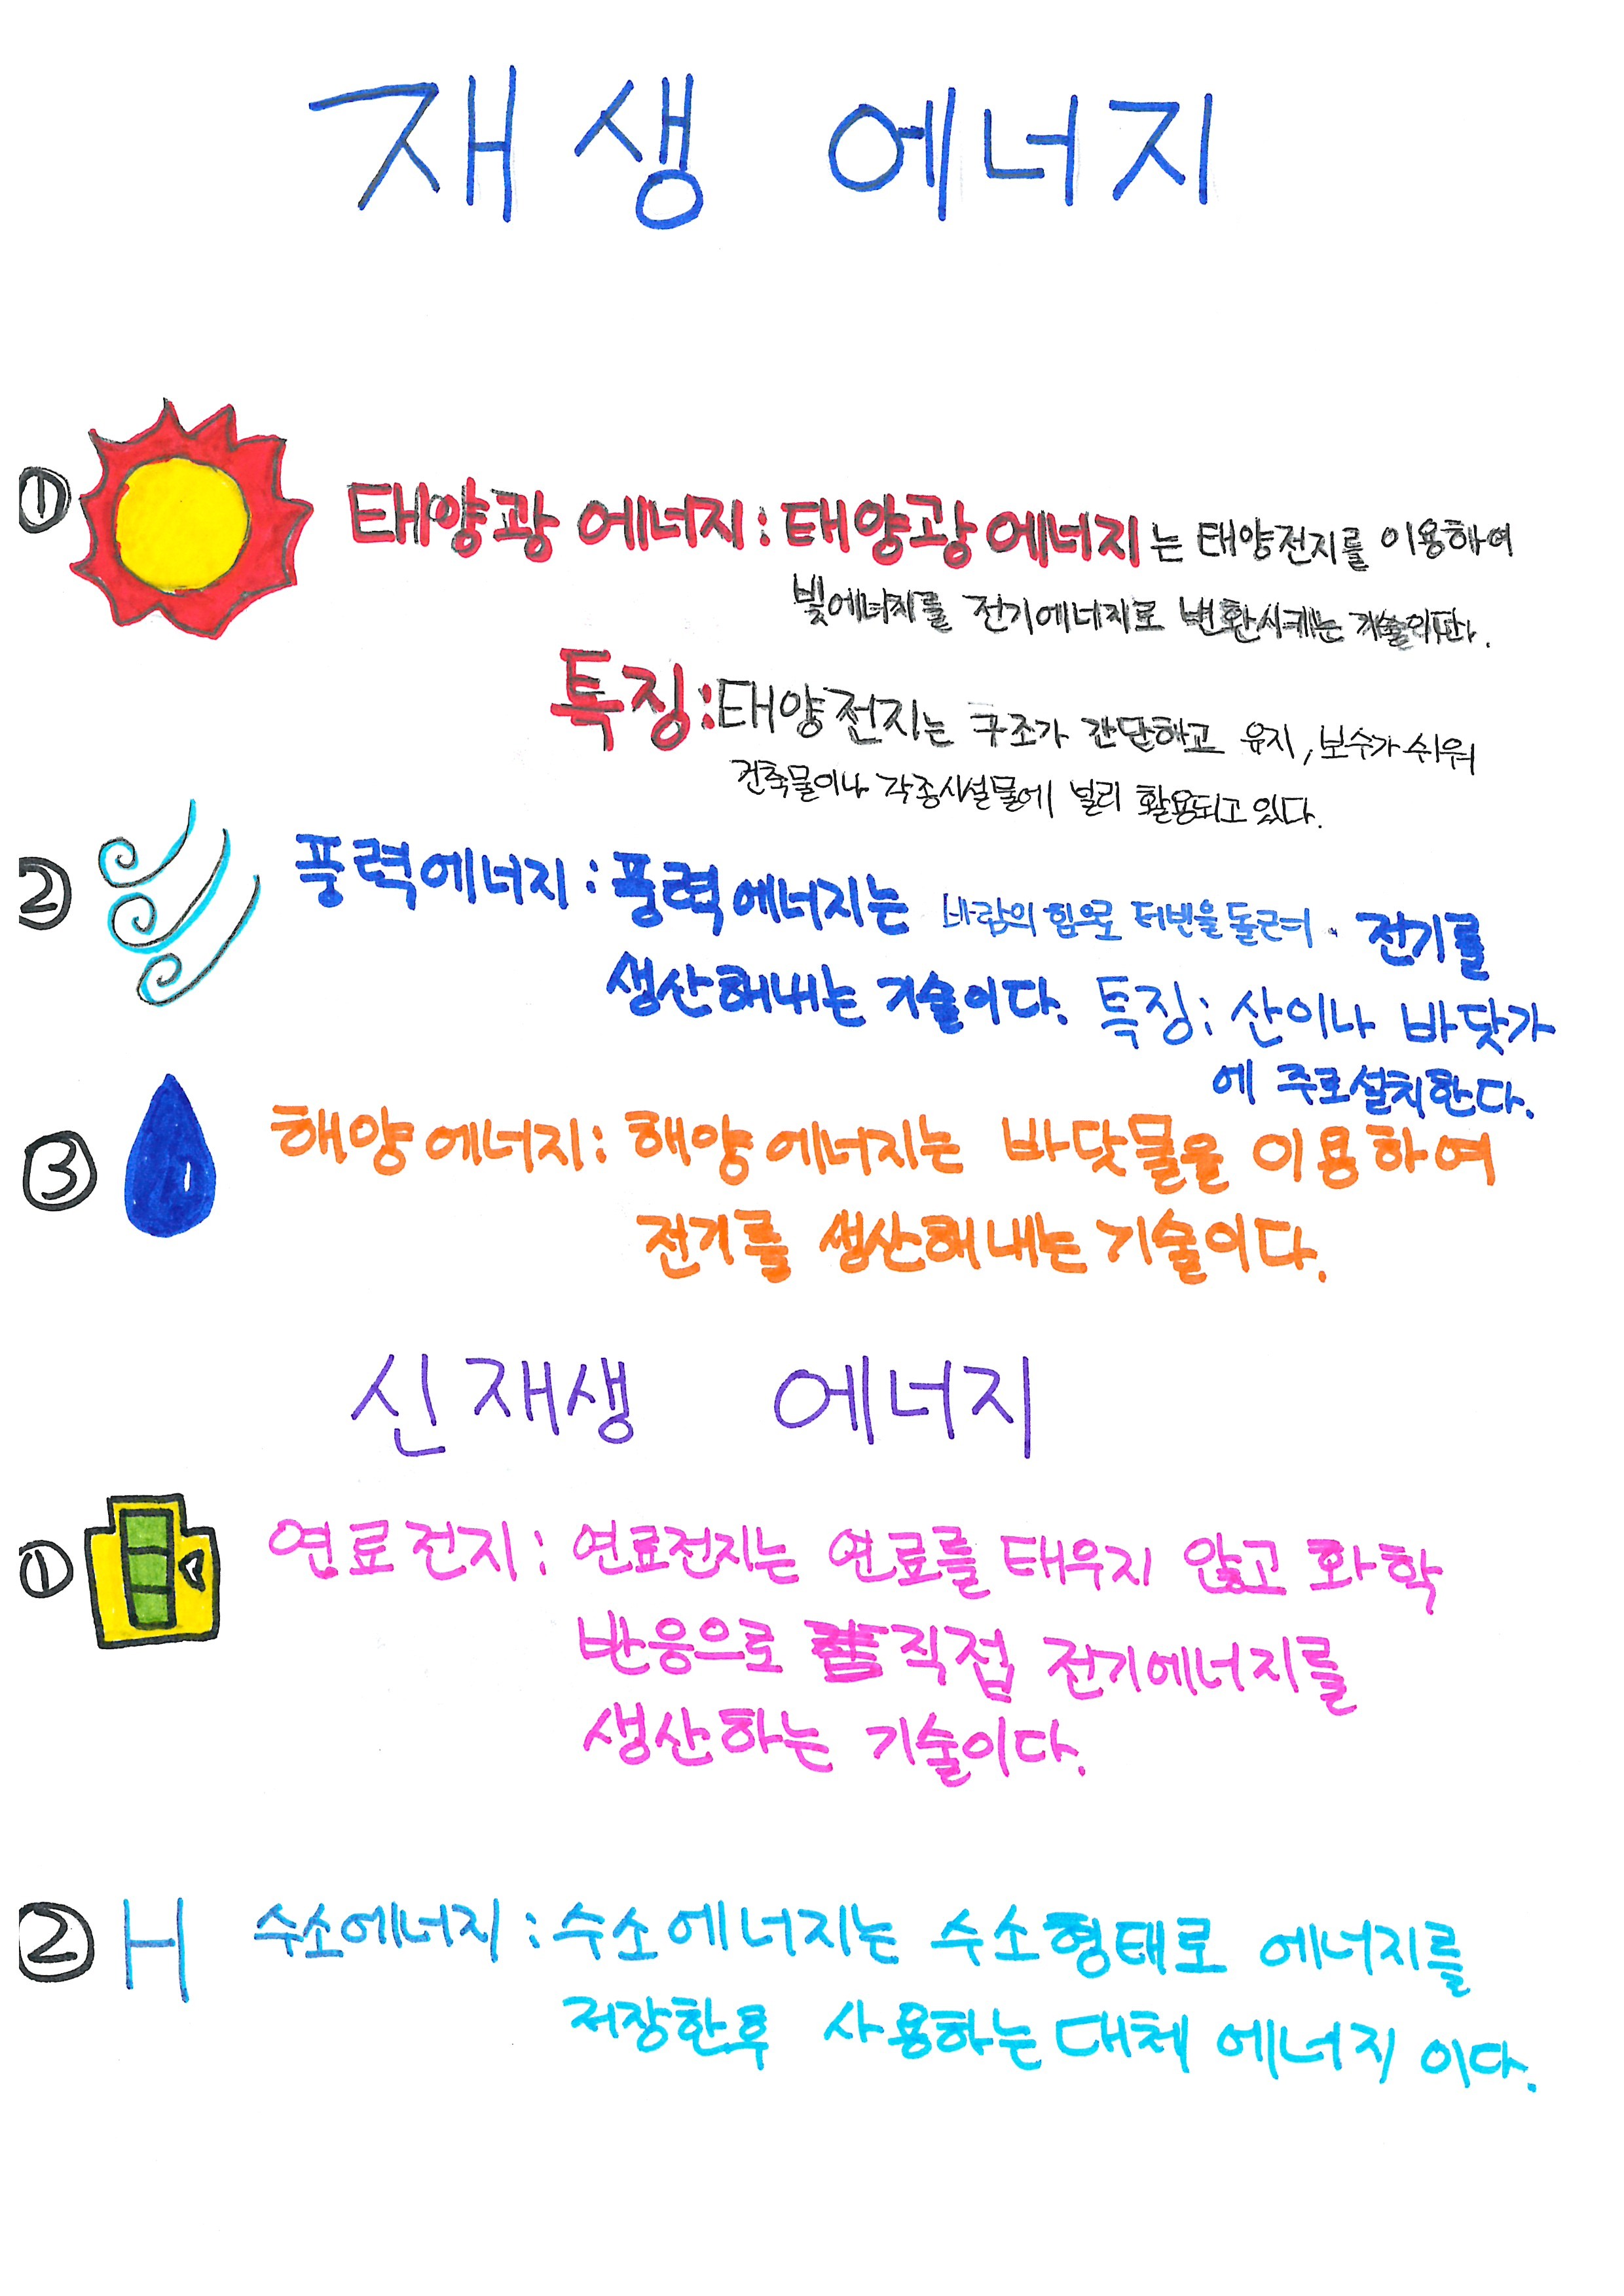 재생 에너지
① 태양광 에너지: 태양광 에너지는 태양전지를 이용하여
빛에너지를 전기에너지로 변환시키는
특징: 태양전지는 구조가 간단하고 유지, 보수가 쉬워
건축물이나 각종시설물에 널리 활용되고 있다.
② 풍력에너지: 풍력에너지는 바람의 힘으로 터빈을 돌려 전기를
생산해내는 기술이다. 특징: 산이나 바닷가
에 주로설치한다.
③ 해양에너지: 해양에너지는 바닷물을 이용하여
전기를 생산해내는 기술이다.
신재생 에너지
① 연료전지: 연료전지는 연료를 태우지 않고 화학
반응으로 직접 전기에너지를
생산하는 기술이다.
② H 수소에너지: 수소에너지는 수소형태로 에너지를
저장한후 사용하는 대체 에너지 이다.